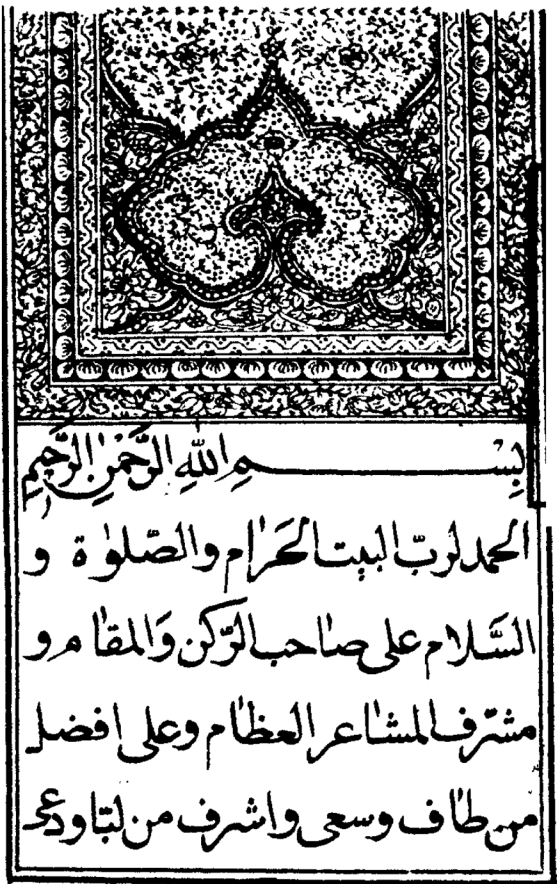 بِسْمِ اللّٰهِ الرَّحْمٰنِ الرَّحِيمِ
الحمد لربّ البیت الحَرام والصّلوٰة و
السَّلام علی صاحب الرّکن وَالمقام و
مشرّف المشاعر العظام وعلی افضل
من طاف وسعی واشرف من لبّا ودعی